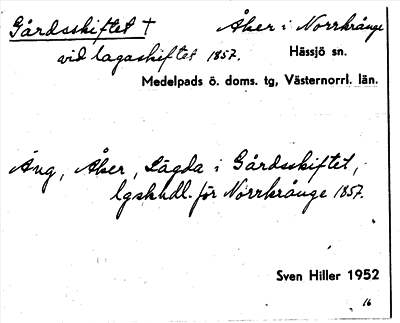 Gårdsskiftet † Åker i Norrkrånge
vid lagaskiftet 1857. Hässjö sn.
Medelpads ö. doms. tg, Västernorrl. län.
Äng, Åker, Lägda i Gårdsskiftet,
lgskhdl. för Norrkrånge 1857.
Sven Hiller 1952
16